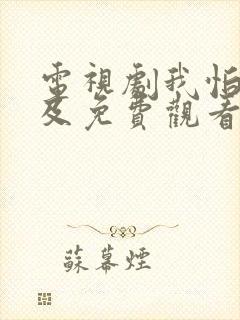 電視劇我怕
及免費觀看
蘇幕煙